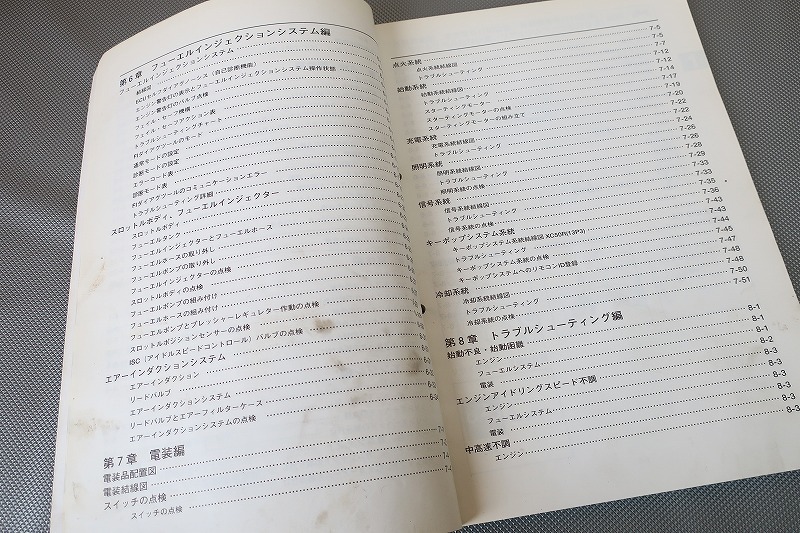 第6章 フューエルインジェクションシステム編
フューエルインジェクションシステム
結線図
ECUセルフダイアグノーシス（自己診断機能）
エンジン警告灯の表示とフューエルインジェクションシステム操作状態
エンジン警告灯のバルブ点検
フェイル・セーフ機構
フェイル・セーフアクション表
トラブルシューティングチャート
FIダイアグツールのモード
通常モードの設定
診断モードの設定
エラーコード表
診断モード表
FIダイアグツールのコミュニケーションエラー
トラブルシューティング詳細
スロットルボディ、フューエルインジェクター
スロットルボディ
フューエルタンク
フューエルインジェクターとフューエルホース
フューエルホースの取り外し
フューエルポンプの取り外し
フューエルインジェクターの点検
スロットルボディの点検
フューエルポンプの組み付け
フューエルホースの組み付け
フューエルポンプとプレッシャーレギュレター作動の点検
スロットルポジションセンサーの点検
ISC（アイドルスピードコントロール）バルブの点検
エアーインダクションシステム
エアーインダクション
リードバルブ
エアーインダクションシステム
リードバルブとエアーフィルターケース
エアーインダクションシステムの点検
第7章 電装編
電装品配置図
電装結線図
スイッチの点検
スイッチの点検
7-5
点火系統 7-5
点火系統結線図 7-7
トラブルシューティング 7-12
始動系統 7-12
始動系統結線図 7-14
トラブルシューティング 7-17
スターティングモーター 7-19
スターティングモーターの点検 7-20
スターティングモーターの組み立て 7-22
充電系統 7-22
充電系統結線図 7-24
トラブルシューティング 7-26
照明系統 7-26
照明系統結線図 7-28
トラブルシューティング 7-29
照明系統の点検 7-33
信号系統 7-33
信号系統結線図 7-35
トラブルシューティング 7-36
信号系統の点検 7-43
キーポップシステム系統 7-43
キーポップシステム系統結線図 XC50R(13P3) 7-44
トラブルシューティング 7-45
キーポップシステム系統の点検 7-47
キーポップシステムへのリモコンID登録 7-48
冷却系統 7-48
冷却系統結線図 7-50
トラブルシューティング 7-51
冷却系統の点検
第8章 トラブルシューティング編
始動不良・始動困難 8-1
エンジン 8-1
フューエルシステム 8-2
電装 8-3
エンジンアイドリングスピード不調 8-3
エンジン 8-3
フューエルシステム 8-3
電装 8-3
中高速不調 8-3
エンジン